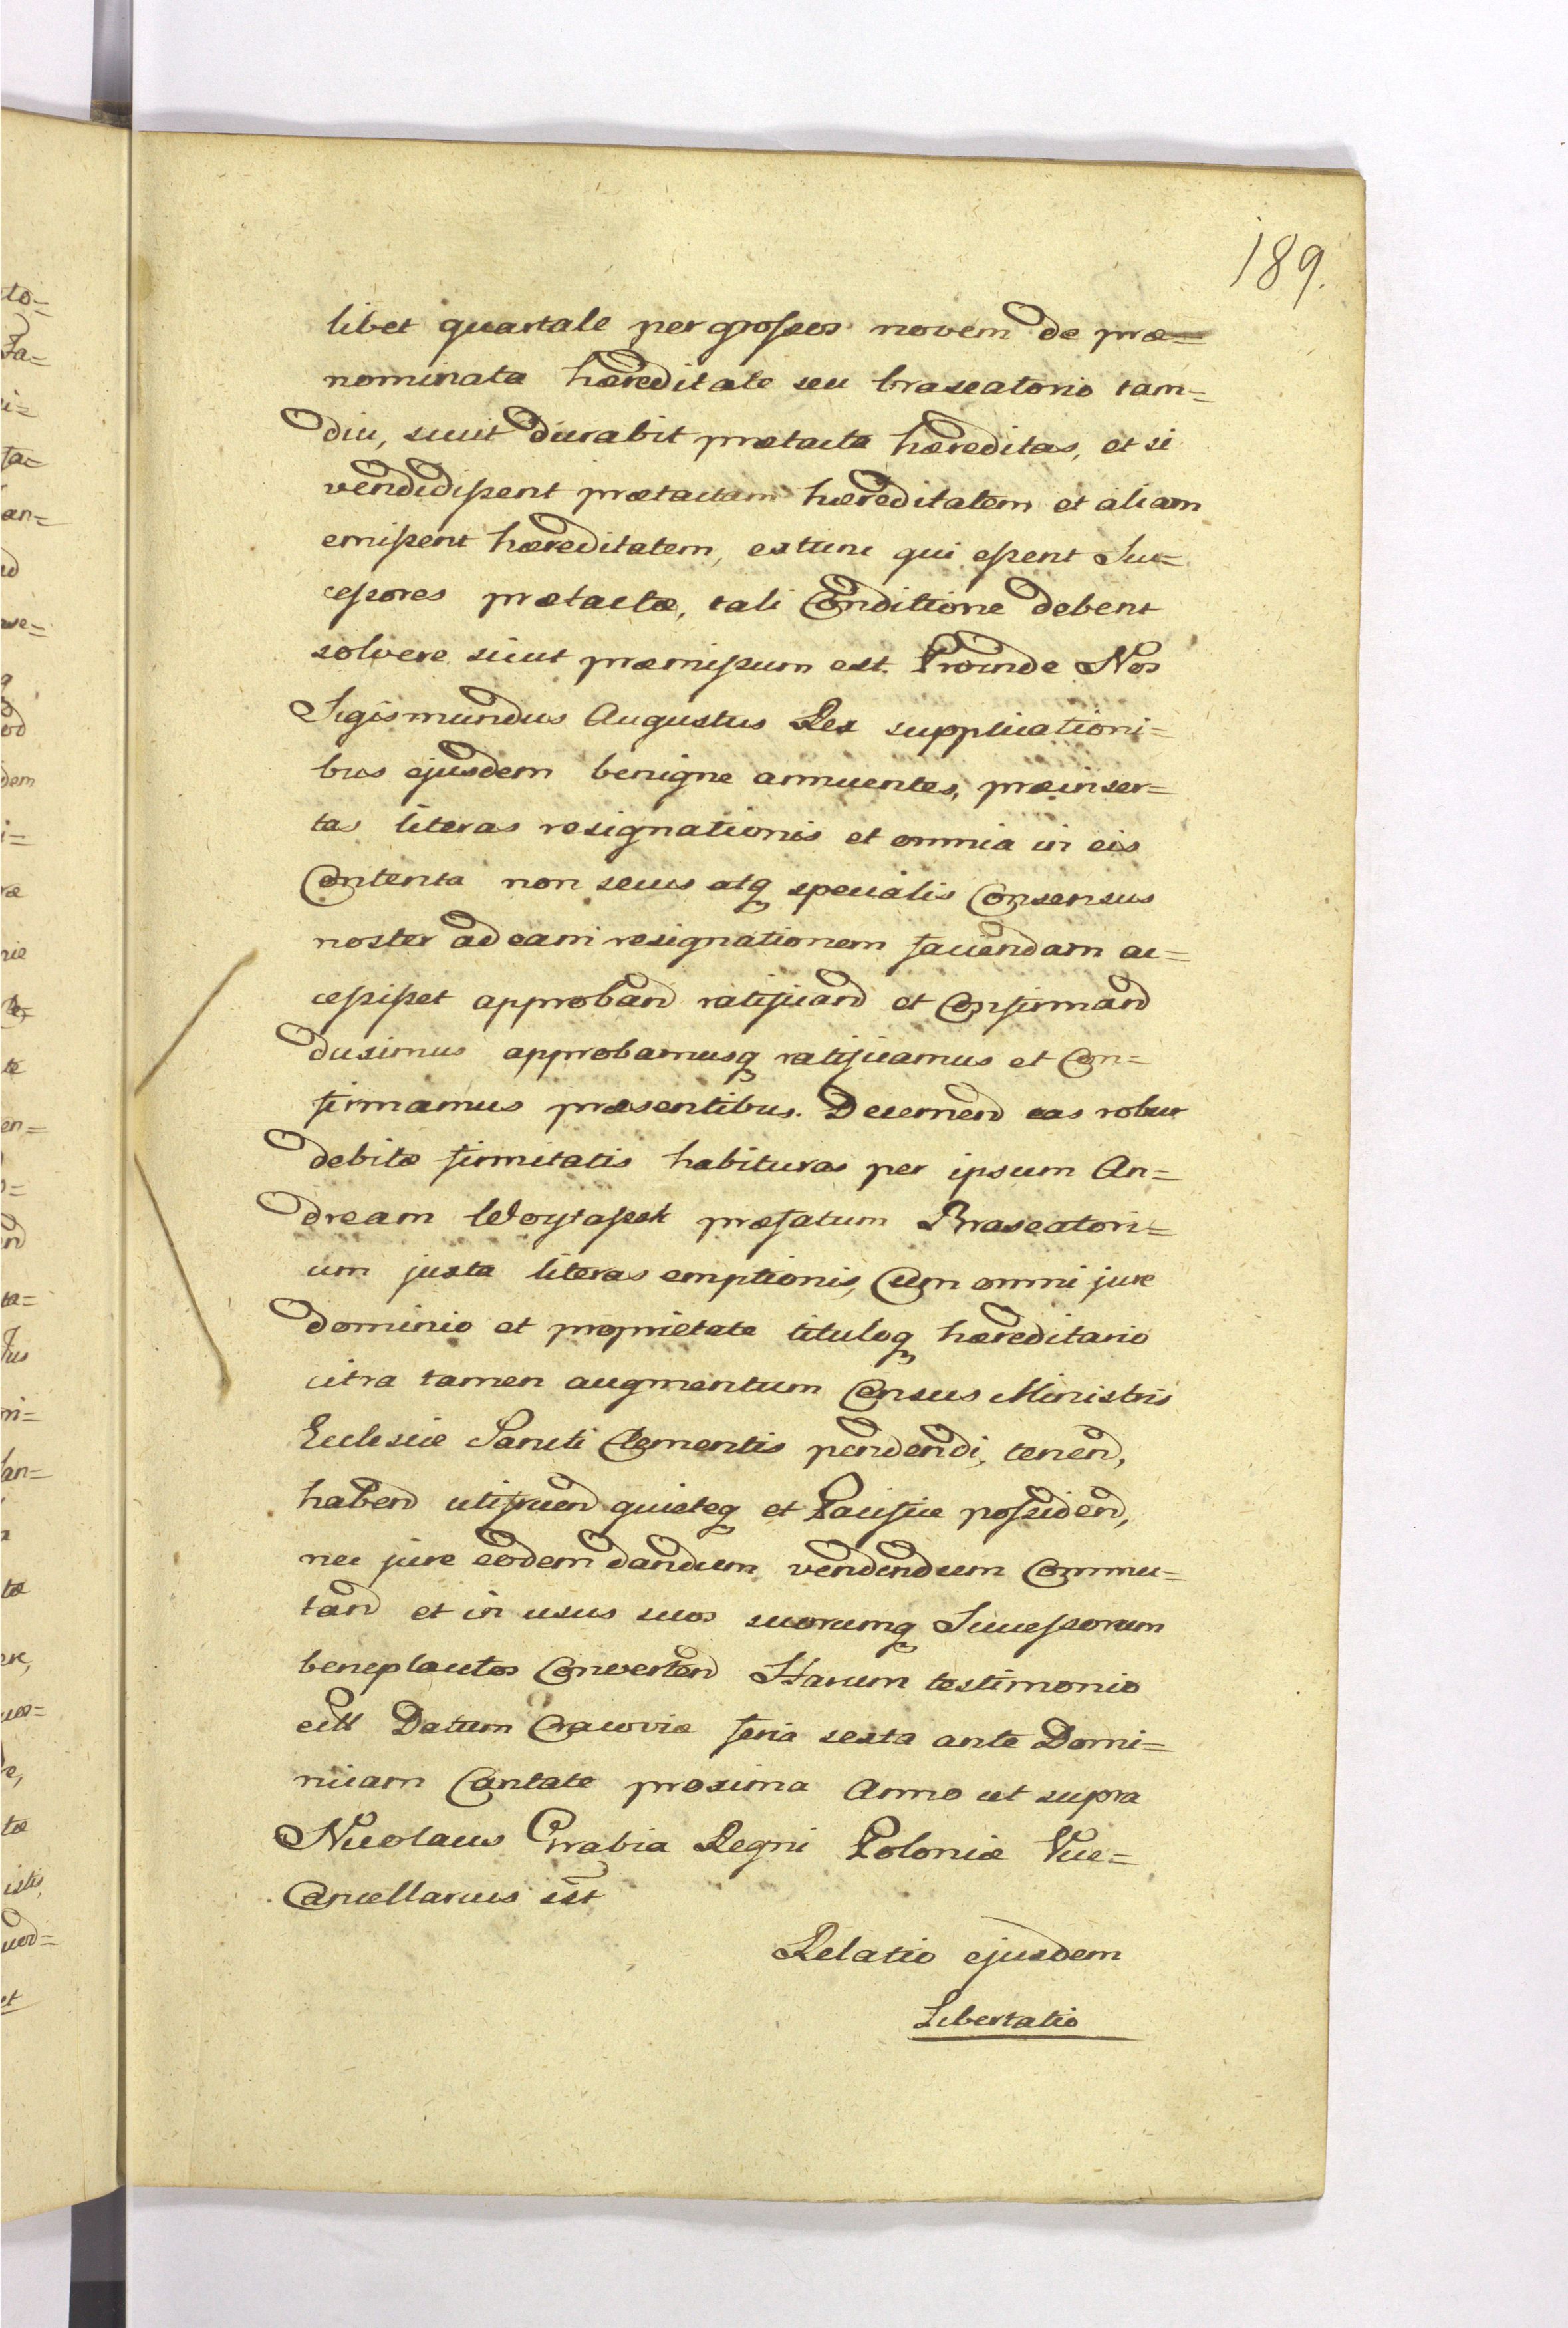 189.
libet quartale per grossos novem de præ=
nominata hæreditate seu braseatorio tam=
diu, sicut durabit prætacta hæreditas, et si
vendidissent prætactam hæreditatem et aliam
emissent hæreditatem, extunc qui essent Suc=
cessores prætactæ, tali Conditione debent
solvere sicut præmissum est. Proinde Nos
Sigismundus Augustus Rex supplicationi=
bus ejusdem benigne annuentes, præinser=
tas literas resignationis et omnia in eis
Contenta non secus atq specialis Consensus
noster ad eam resignationem faciendam ac=
cessisset approband ratificand et Confirmand
duximus approbamusq ratificamus et Con=
firmamus præsentibus. Decernend eas robur
debitæ firmitatis habituras per ipsum An=
dream Woytassek præfatum Braseatori=
um juxta literas emptionis, Cum omni jure
dominio et proprietate tituloq hæreditario
citra tamen augmentum Census Ministris
Ecclesiæ Sancti Clementis pendendi, tenend,
habend utifruend quieteq et Pacifice possidend,
nec jure eodem dandum vendendum Commu=
tand et in usus suos suorumq Successorum
beneplacitos Convertend Harum testimonio
Datum Cracoviæ feria sexta ante Domi=
nicam Cantate proxima Anno ut supra
Nicolaus Grabia Regni Poloniæ Vice=
Cancellarius sst
Relatio ejusdem
Libertatio